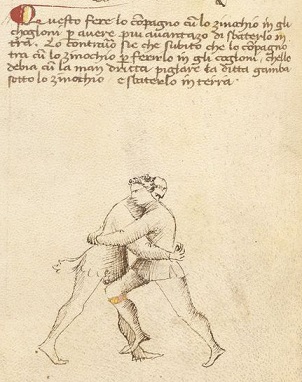 Questo fere lo cõpagno cũ lo zinochio in gli
choglioni p avere piu avantazo di sbaterlo in
tr̃a. Lo contrario sie che subito che lo cõpagno
tra cũ lo zinochio p ferirlo in gli coglioni, chello
debia cũ la man dritta pigliare la ditta gamba
sotto lo zinochio e sbaterlo in terra.